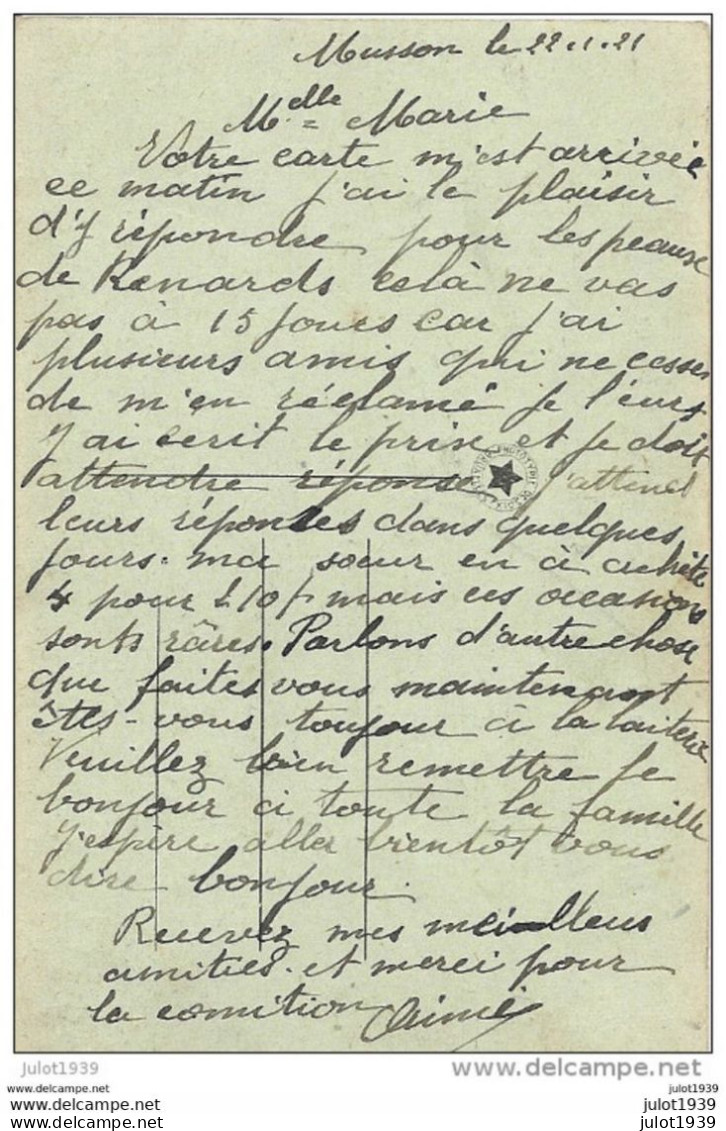 Musson le 22.1.21
Melle Marie
Votre carte m'est arrivée
ce matin j'ai le plaisir
d'y répondre pour les peause
de Renards celà ne vas
pas à 15 joues car j'ai
plusieurs amis qui ne cesser
de m'en réclamé je l'eurs
y ai ecrit le prix et je doit
attendre réponse j'attend
leurs réponses dans quelques
jours. ma sœur en à achète
4 pour 210f mais ces occasions
sonts râres. Parlons d'autre chose
que faites vous maintenant
êtes-vous toujour à la laiterie
Veuillez bien remettre le
bonjour à toute la famille
J'espère aller bientôt vous
dire bonjour.
Recevez mes meilleus
amitiés. et merci pour
la comition Aimé
julot1939
delcampe.net
www.delcampe.net
julot1939
julot1939
julot1939
www.delcampe.net
julot1939